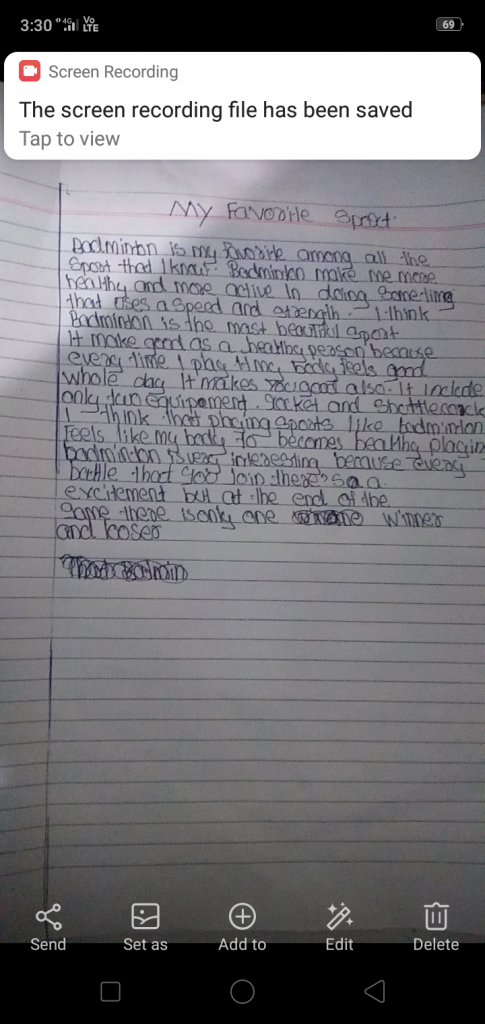 3:30 4G Vo LTE 69
Screen Recording
The screen recording file has been saved
Tap to view
My Favorite Sport.
Badminton is my favorite among all the
Sport that I know. Badminton make me more
healthy and more active In doing something
that uses a speed and strength. I think
Badminton is the most beautiful sport
It make good as a healthy person because
every time I play it my body feels good
whole day It makes good also. It include
only two equipement. racket and Shuttlecock
I think that playing sports like badminton
Feels like my body to becomes healthy playin
badminton is very interesting because every
battle that you join there's a a
excitement but at the end of the
game there is only one winner
and looser
Send Set as Add to Edit Delete